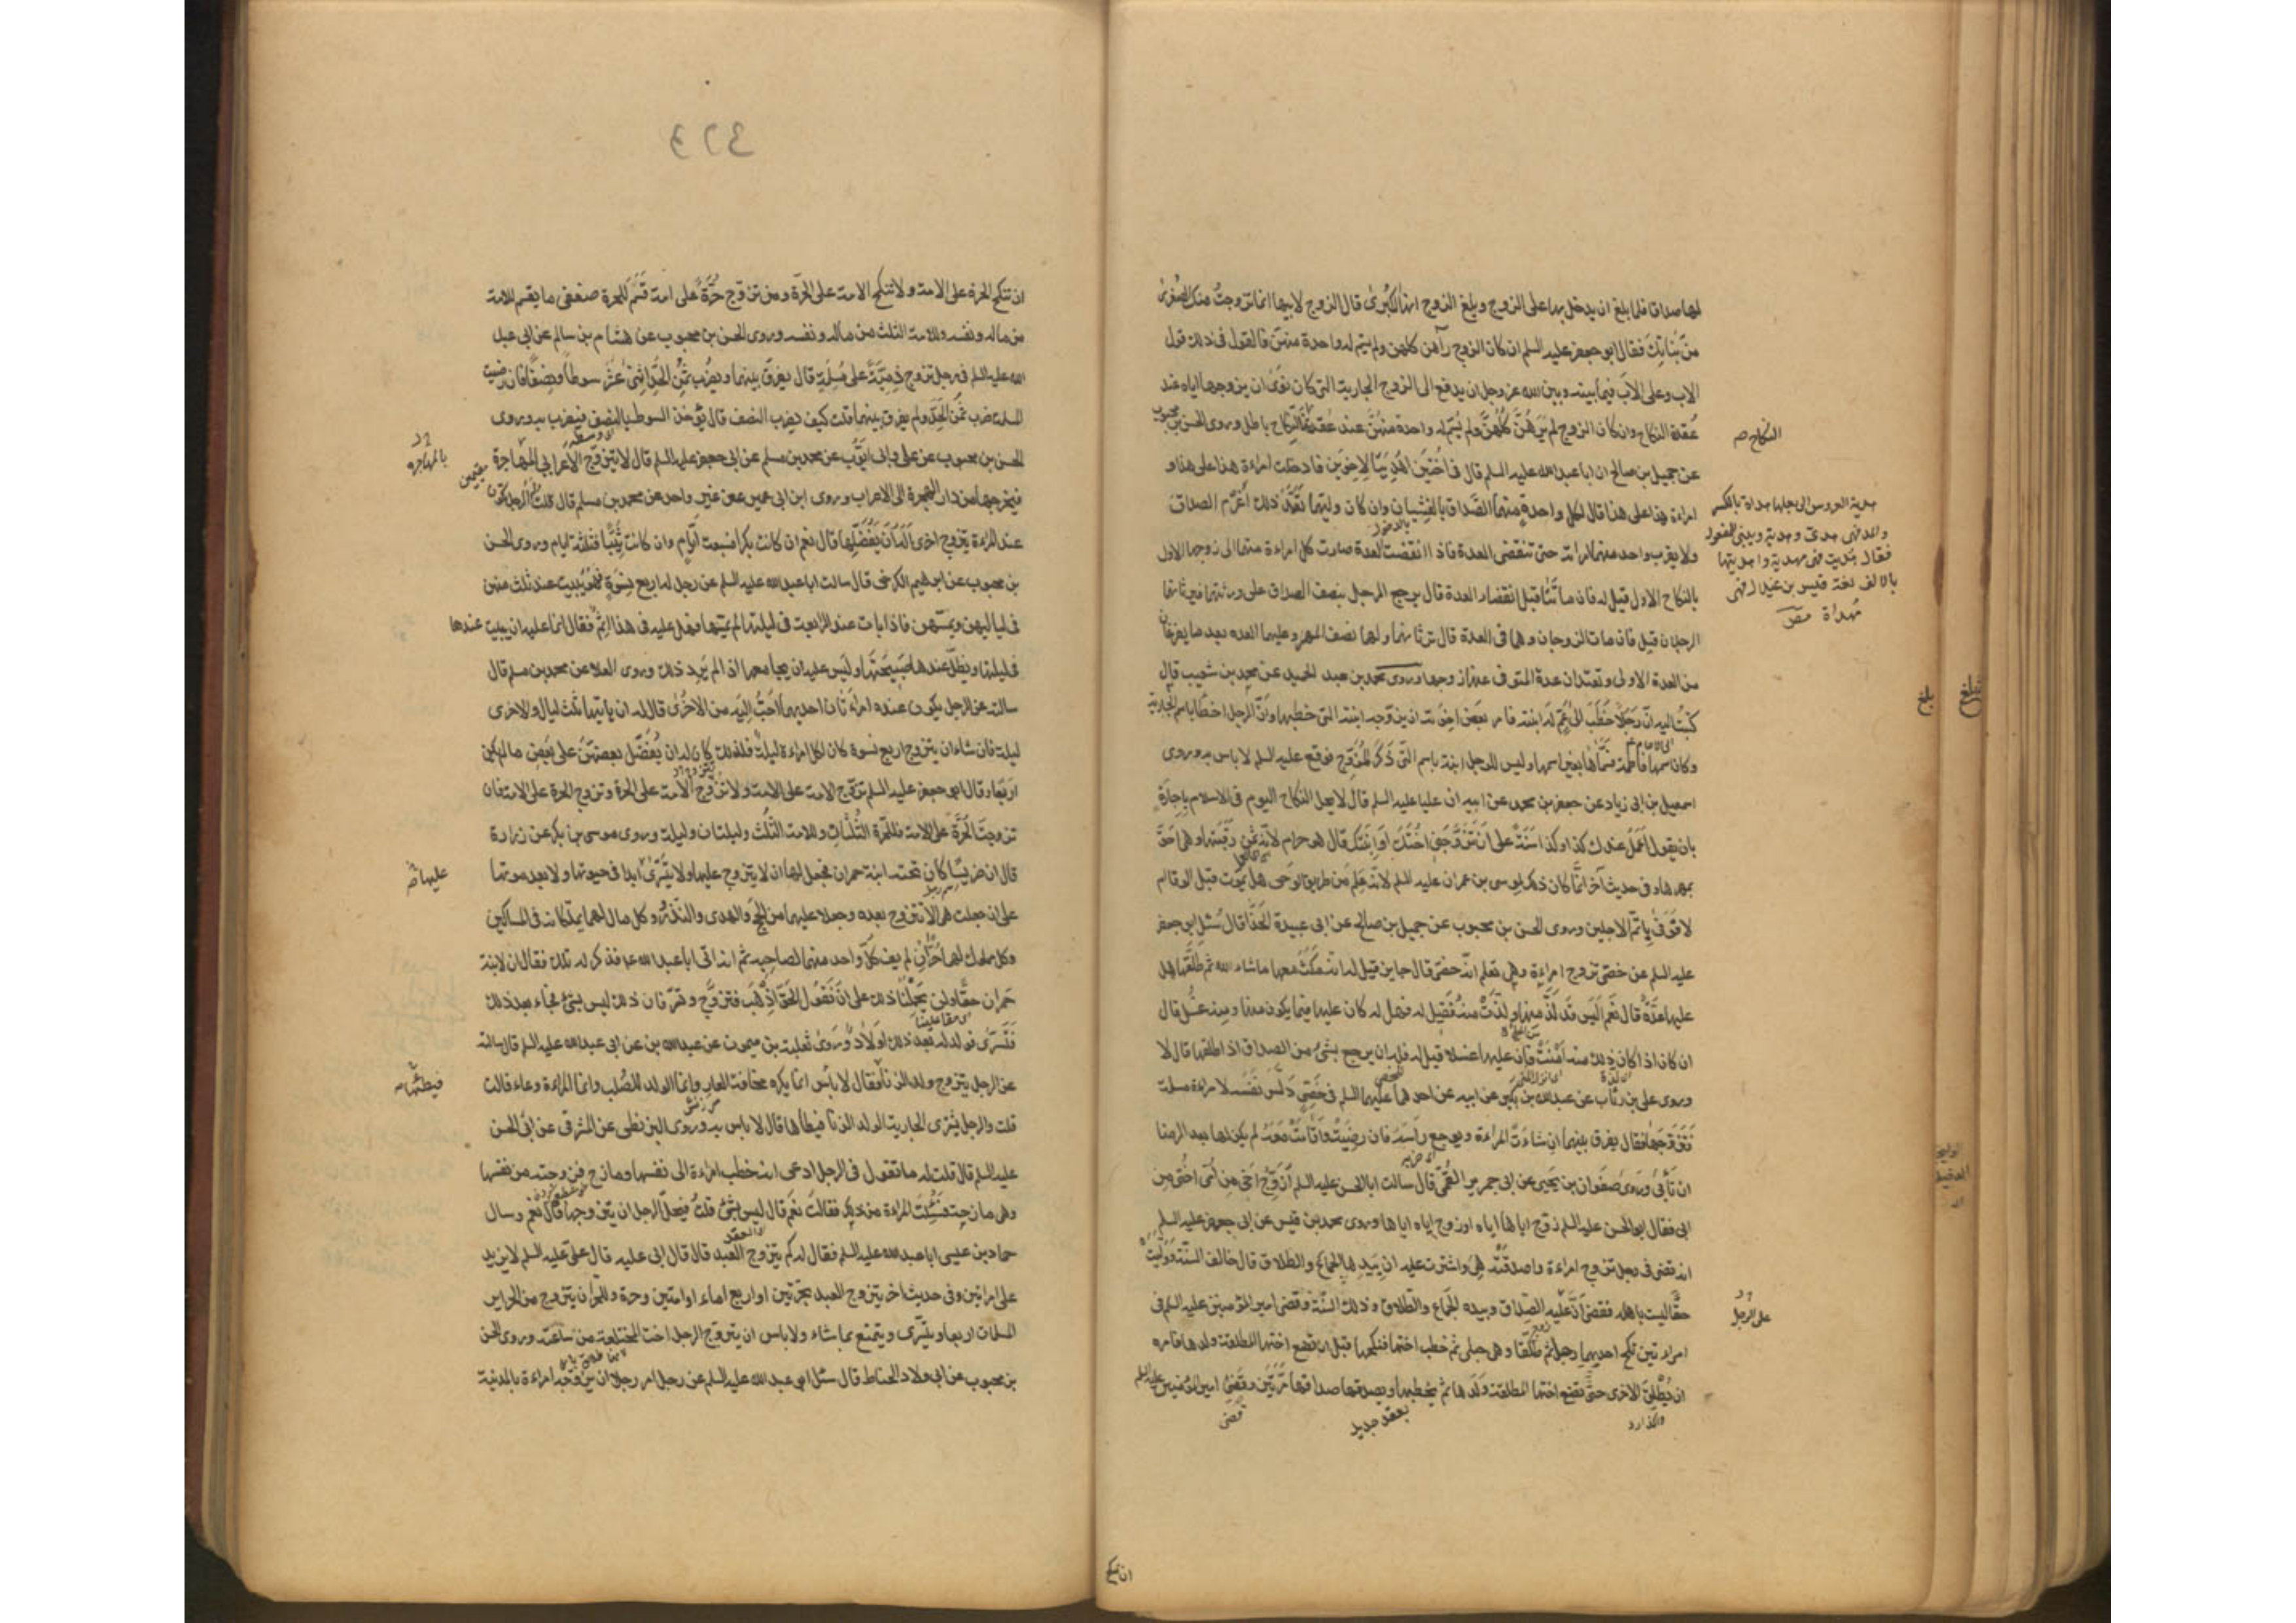 لها صداقا فلما بلغ ان يدخل بها على الزوج وبلغ الزوج انها الكبرى قال الزوج لابيها انما تزوجت منك الصغرى
من بناتك فقال ابو جعفر عليه السلم ان كان الزوج رآهن كلهن ولم يسم له واحدة منهن فالقول في ذلك قول
الاب وعلى الاب فيما بينه وبين الله عز وجل ان يدفع الى الزوج الجارية التي كان نوى ان يزوجها اياه عند
عقدة النكاح وان كان الزوج لم يرهن كلهن ولم يسم له واحدة منهن عند عقدة النكاح فالنكاح باطل وروى الحسن بن محبوب
النكاح صح
عن جميل بن صالح ان ابا عبد الله عليه السلم قال في اختين اهديتا لاخوين فادخلت امراءة هذا على هذا و
امراءة هذا على هذا قال لكل واحدة منهما الصداق بالغشيان وان كان وليهما تعمد ذلك اغرم الصداق
بالدخول
ولا يقرب واحد منهما امراته حتى تنقضى العدة فاذا انقضت العدة صارت كل امراءة منهما الى زوجها الاول
بالنكاح الاول قيل له فان ماتتا قبل انقضاء العدة قال يرجع الرجل بنصف الصداق على ورثتهما فيرثانهما
الرجلان قيل فان مات الزوجان وهما في العدة قال ترثانهما ولها نصف المهر وعليهما العدة بعد ما يفرغان
من العدة الاولى وتعتدان عدة المتوفى عنها زوجها وروى محمد بن عبد الحميد عن محمد بن شعيب قال
كتبت اليه ان رجلا خطب الى عم له ابنته فامر بعض اخوته ان يزوجه ابنته التي خطبها وان الرجل اخطا باسم الجارية
وكان اسمها فاطمة فسماها بغير اسمها وليس للرجل ابنة باسم التي ذكر المزوج فوقع عليه السلم لا باس به وروى
اسمعيل بن ابي زياد عن جعفر بن محمد عن ابيه ان عليا عليه السلم قال لا يحل النكاح اليوم في الاسلام باجارة
بان يقول اعمل عندك كذا وكذا سنة على ان تزوجني اختك او ابنتك قال هو حرام لانه ثمن رقبتها وهي احق
بمهرها وفي حديث آخر انما كان ذلك لموسى بن عمران عليه السلم لانه علم من طريق الوحى هل يموت قبل الوفا ام
لا فوفى باتم الاجلين وروى الحسن بن محبوب عن جميل بن صالح عن ابي عبيدة الحذا قال سئل ابو جعفر
عليه السلم عن خصى تزوج امراءة وهي تعلم انه خصى قال جايز قيل له انه مكث معها ما شاء الله ثم طلقها هل
عليها عدة قال نعم اليس قد لذ منها ولذت منه قيل له فهل له كان عليها فيما يكون منه ومنها غسل قال
ان كان اذا كان ذلك منه امنت فان عليها غسلا قيل له فله ان يرجع بشئ من الصداق اذا طلقها قال لا
وروى على بن رئاب عن عبد الله بن بكير عن ابيه عن احدهما عليهما السلم في خصى دلس نفسه لامراءة مسلمة
فتزوجها فقال يفرق بينهما ان شاءت المراءة ويوجع راسه فان رضيت واقامت معه لم يكن لها بعد الرضا
ان تابى وروى صفوان بن يحيى عن ابي جرير القمى قال سالت ابا الحسن عليه السلم ازوج اخى من امى اختى من
ابى فقال ابو الحسن عليه السلم زوج اياها اياه او زوج اياه اياها وروى محمد بن قيس عن ابي جعفر عليه السلم
انه قضى في رجل تزوج امراءة واصدقته هي واشترطت عليه ان بيدها الجماع والطلاق قال خالف السنة وولت
حقا ليست باهله فقضى ان عليه الصداق وبيده الجماع والطلاق وذلك السنة وقضى امير المؤمنين عليه السلم في
على الرجل
امراءتين نكح احديهما رجل ثم طلقها وهي حبلى ثم خطب اختها فنكحها قبل ان تضع اختها المطلقة ولدها فامره
ان يطلق الاخرى حتى تضع اختها المطلقة ولدها ثم يخطبها ويصدقها صداقها مرتين وقضى امير المؤمنين عليه السلم
بعقد جديد
ان تنكح
ان تنكح الحرة على الامة ولا تنكح الامة على الحرة ومن تزوج حرة على امة قسم للحرة ضعفى ما يقسم للامة
من ماله ونفسه وللامة الثلث من ماله ونفسه وروى الحسن بن محبوب عن هشام بن سالم عن ابي عبد
الله عليه السلم في رجل تزوج ذمية على مسلمة قال يفرق بينهما ويضرب ثمن الحد اثنى عشر سوطا ونصفا فان رضيت
المسلمة ضرب ثمن الحد ولم يفرق بينهما قلت كيف يضرب النصف قال يؤخذ السوط بالنصف فيضرب به وروى
الحسن بن محبوب عن على وابي ايوب عن محمد بن مسلم عن ابي جعفر عليه السلم قال لا يتزوج الاعرابي المهاجرة
بالمهاجرة
فيخرجها من دار الهجرة الى الاعراب وروى ابن ابي عمير عن غير واحد عن محمد بن مسلم قال قلت له الرجل تكون
عند المراءة يتزوج اخرى اله ان يفضلها قال نعم ان كانت بكرا فسبعة ايام وان كانت ثيبا فثلثة ايام وروى الحسن
بن محبوب عن ابراهيم الكرخى قال سالت ابا عبد الله عليه السلم عن رجل له اربع نسوة فهو يبيت عند ثلث منهن
في لياليهن ويمسهن فاذا بات عند الرابعة في ليلتها لم يمسها فهل عليه في هذا اثم فقال انما عليه ان يبيت عندها
في ليلتها ويظل عندها صبيحتها وليس عليه ان يجامعها اذا لم يرد ذلك وروى العلا عن محمد بن مسلم قال
سالته عن الرجل يكون عنده امراءتان احديهما احب اليه من الاخرى قال له ان ياتيها ثلث ليال والاخرى
ليلة فان شاء ان يتزوج اربع نسوة كان لكل امراءة ليلة فلذلك كان له ان يفضل بعضهن على بعض ما لم يكن
اربعا وقال ابو جعفر عليه السلم تزوج الامة على الامة ولا تزوج الامة على الحرة وتزوج الحرة على الامة فان
تزوجت الحرة على الامة فللحرة الثلثان وللامة الثلث وليلتان وليلة وروى موسى بن بكر عن زرارة
قال ان ضريسا كان تحته ابنة حمران فجعل لها ان لا يتزوج عليها ولا يتسرى ابدا في حيوتها ولا بعد موتها
على ان جعلت هي الا تتزوج بعده وجعلا عليهما من الحج والهدى والنذور وكل مال لهما يملكانه في المساكين
وكل مملوك لهما حر ان لم يف كل واحد منهما لصاحبه ثم انه اتى ابا عبد الله عا فذكر له ذلك فقال ان لابنة
حمران حقا ولن يحملنا ذلك على ان نقول الحق اذهب فتزوج وتسر فان ذلك ليس بشئ فجاء بعد ذلك
فتسرى فولد له بعد ذلك اولاد وروى ثعلبة بن ميمون عن عبد الله بن عن ابي عبد الله عليه السلم قال سالته
عن الرجل يتزوج ولد الزنا فقال لا باس انما يكره مخافة العار وانما الولد للصلب وانما المراءة وعاء قالت
قلت والرجل يشترى الجارية الولد الزنا فيطأها قال لا باس به وروى البزنطى عن المشرقى عن ابي الحسن
عليه السلم قال قلت له ما تقول في الرجل ادعى انه خطب امراءة الى نفسها ومازح فزوجته من نفسها
وهي مازحة فسئلت المراءة من ذلك فقالت نعم قال ليس بشئ قلت فيحل للرجل ان يتزوجها قال نعم وسال
حماد بن عيسى ابا عبد الله عليه السلم فقال له كم يتزوج العبد قال قال ابي عليه قال على عليه السلم لا يزيد
على امراتين وفي حديث اخر يتزوج العبد بحرتين او اربع اماء او امتين وحرة وللحر ان يتزوج من الحراير
المسلمات اربعا ويتسرى ويتمتع بما شاء ولا باس ان يتزوج الرجل اخت المختلعة من ساعته وروى الحسن
بن محبوب عن ابي ولاد الحناط قال سئل ابو عبد الله عليه السلم عن رجل امر رجلا ان يزوجه امراءة بالمدينة